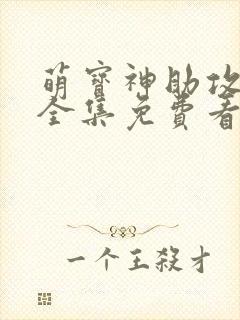 萌寳神助攻
全集免費看
一个王殺才